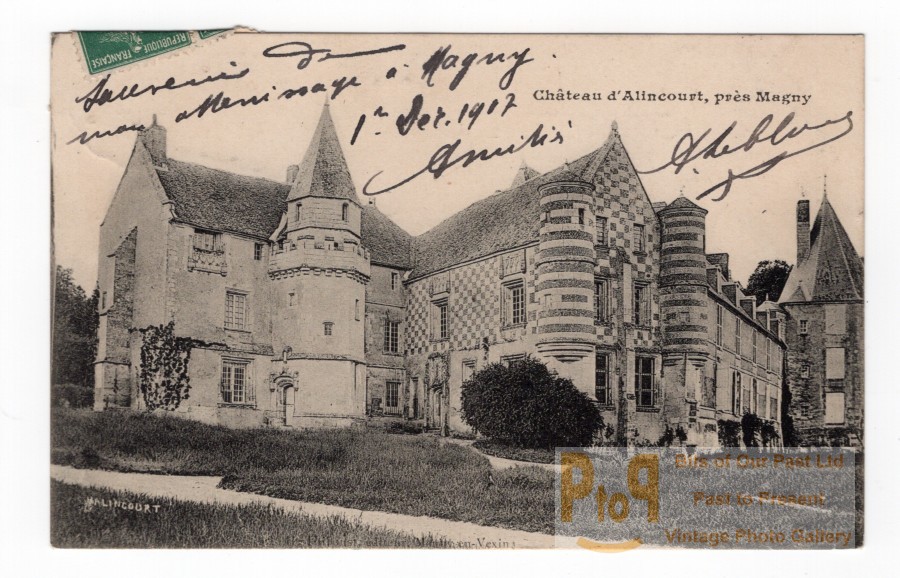 REPUBLIQUE FRANÇAISE
Souvenir de
mon à Magny.
1er Dec. 1917
Amitiés
A. Leblanc
Château d'Alincourt, près Magny
ALINCOURT
en-Vexin
PToP
Bits of Our Past Ltd
Past to Present
Vintage Photo Gallery